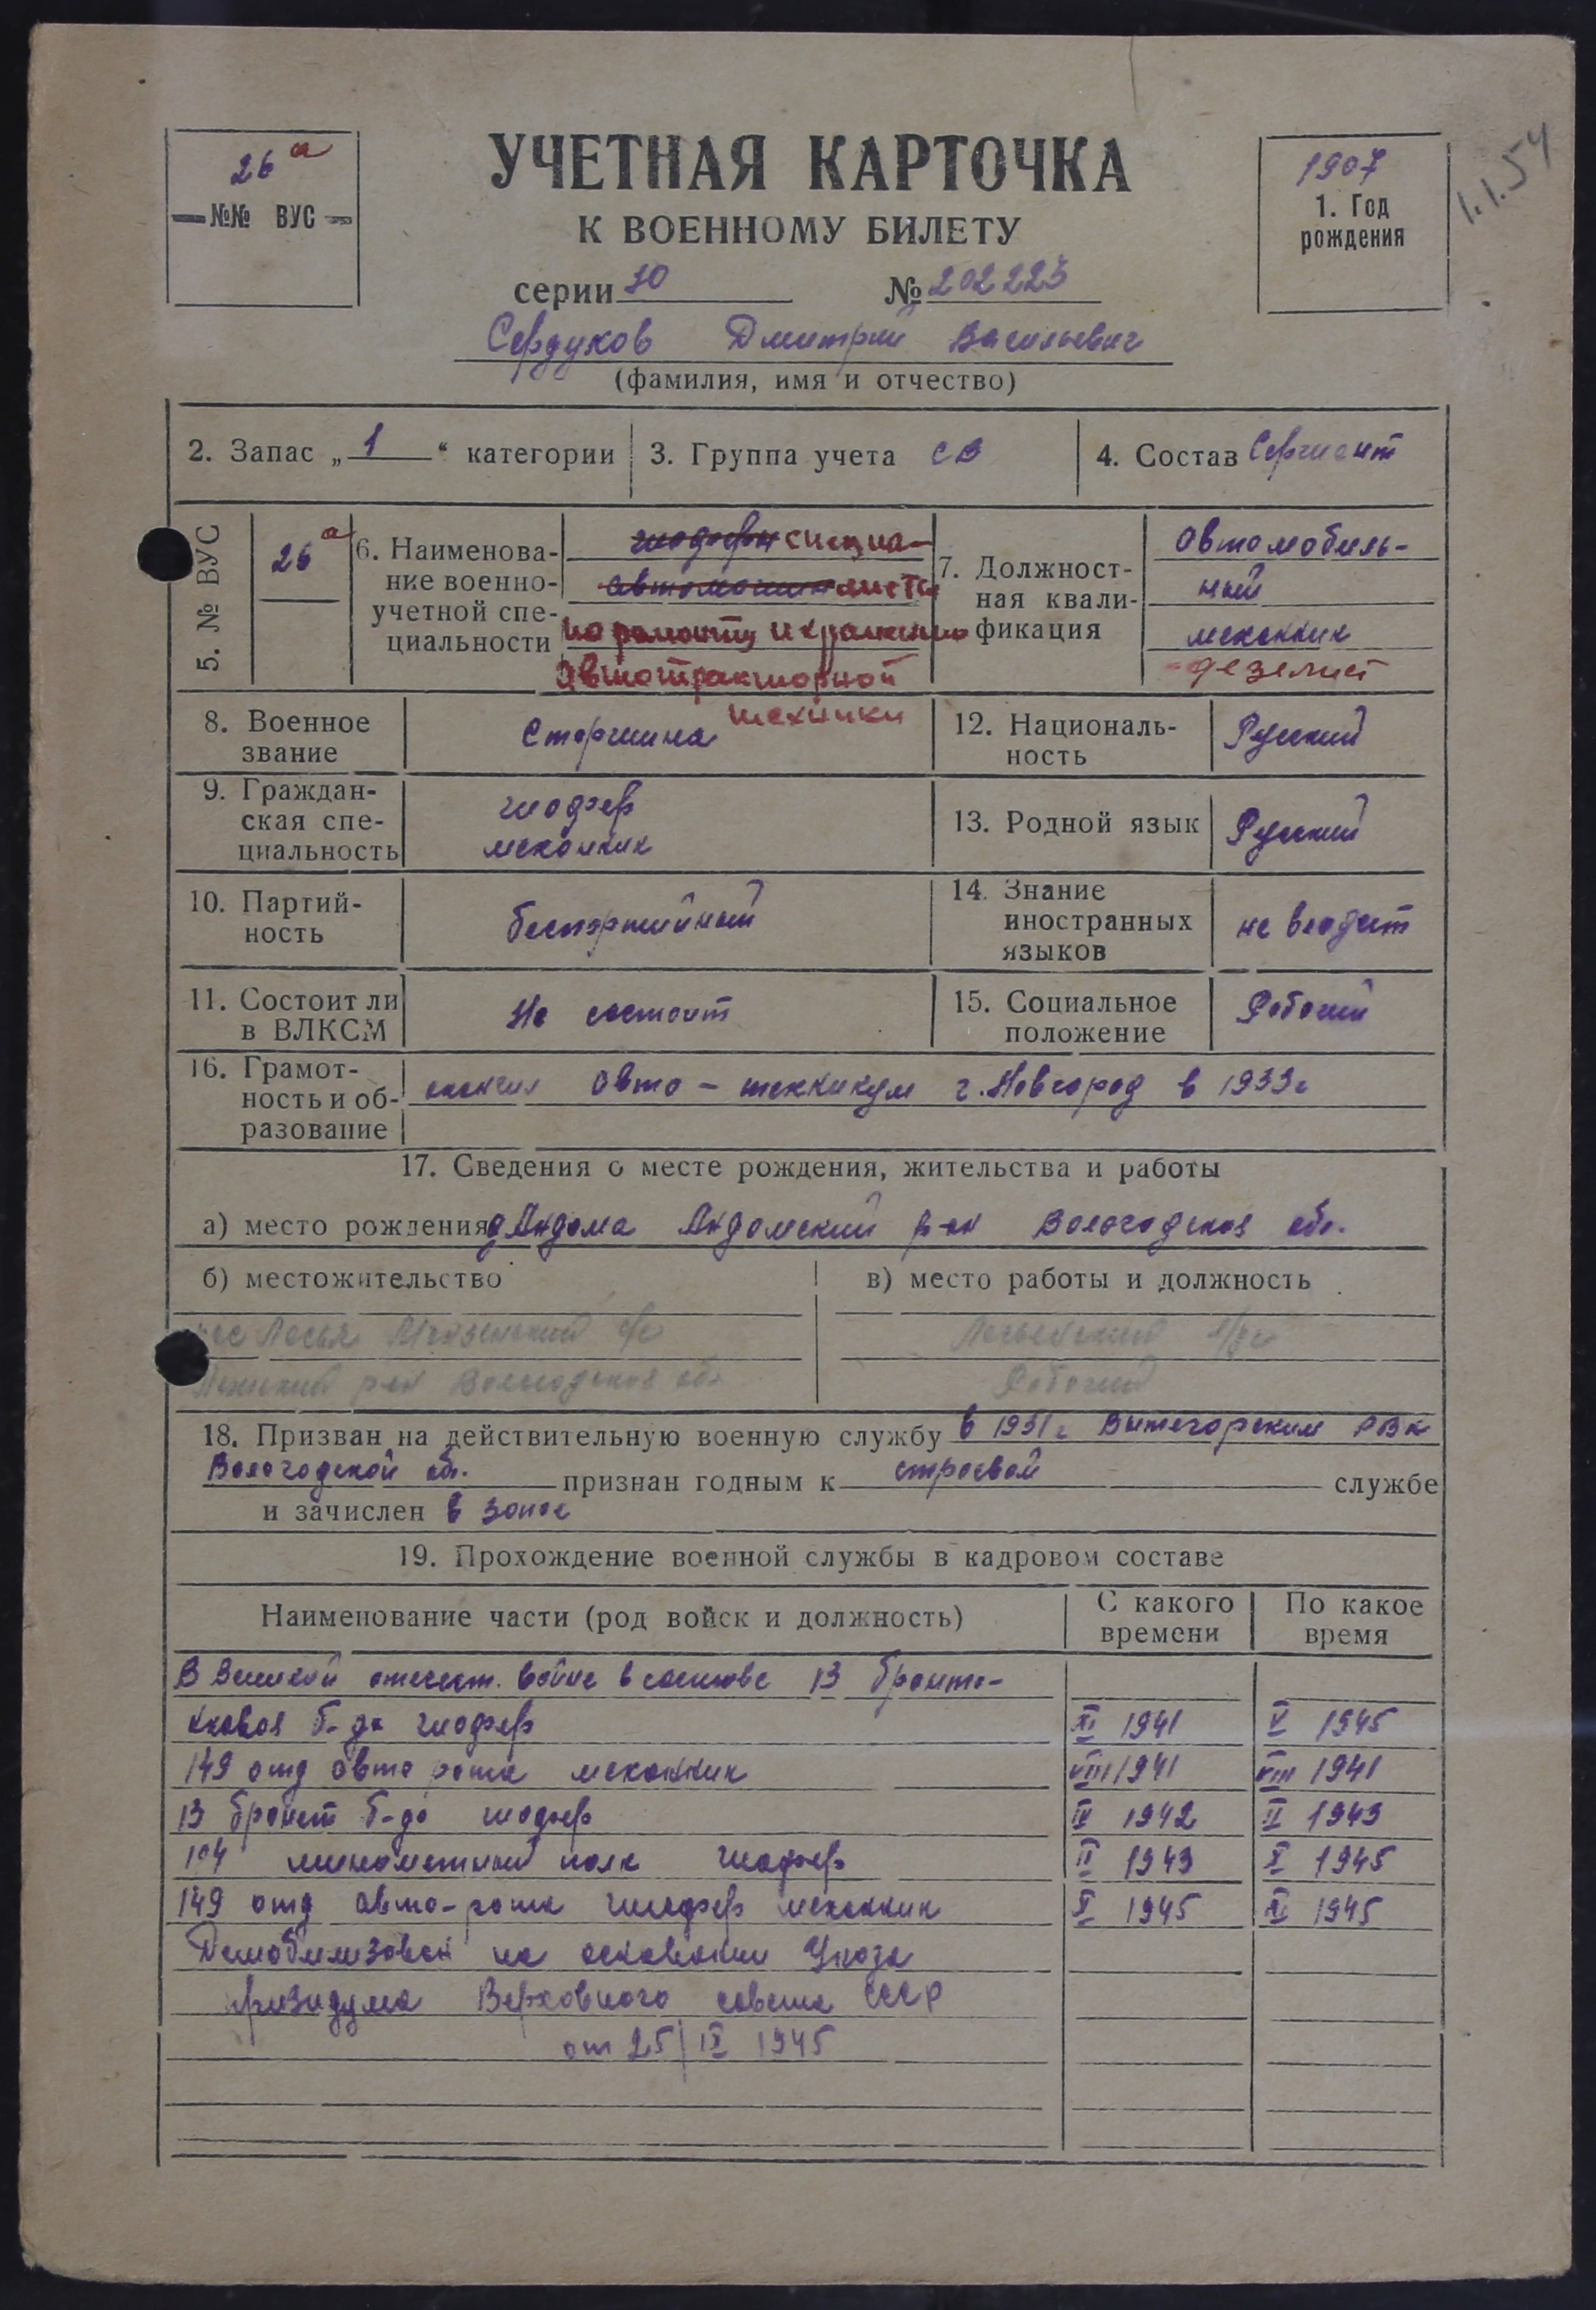 26 а
№№ ВУС
УЧЕТНАЯ КАРТОЧКА
К ВОЕННОМУ БИЛЕТУ
серии 10 № 202223
1907
1. Год
рождения
1.1.54
Сердуков Дмитрий Васильевич
(фамилия, имя и отчество)
2. Запас „ 1 “ категории
3. Группа учета СВ
4. Состав Сержант
5. № ВУС
26 а
6. Наименова-
ние военно-
учетной спе-
циальности
специа-
листы
по ремонту и хранению
автотракторной
техники
7. Должност-
ная квали-
фикация
Автомобиль-
ный
механик
дезелист
8. Военное
звание
Старшина
12. Националь-
ность
Русский
9. Граждан-
ская спе-
циальность
шофер
механик
13. Родной язык
Русский
10. Партий-
ность
беспартийный
14. Знание
иностранных
языков
не владеет
11. Состоит ли
в ВЛКСМ
Не состоит
15. Социальное
положение
Рабочий
16. Грамот-
ность и об-
разование
окончил авто – техникум г. Новгород в 1933г
17. Сведения о месте рождения, жительства и работы
а) место рождения д Андома Андомский р-он Вологодская обл.
б) местожительство
в) место работы и должность
пос Лосья с/с
р-он Вологодская обл
Рабочий
18. Призван на действительную военную службу в 1931г Вытегорским РВК
Вологодской обл. признан годным к строевой службе
и зачислен в запас
19. Прохождение военной службы в кадровом составе
Наименование части (род войск и должность)
С какого
времени
По какое
время
В Великой отечест. войне в составе 13 бронета-
нковая б-да шофер XI 1941 V 1945
149 отд авто рота механик VIII 1941 VIII 1941
13 бронет б-да шофер IV 1942 II 1943
104 минометный полк шофер II 1943 X 1945
149 отд авто-рота шофер механик X 1945 XI 1945
Демобилизован на основании Указа
призидума Верховного совета СССР
от 25/IX 1945